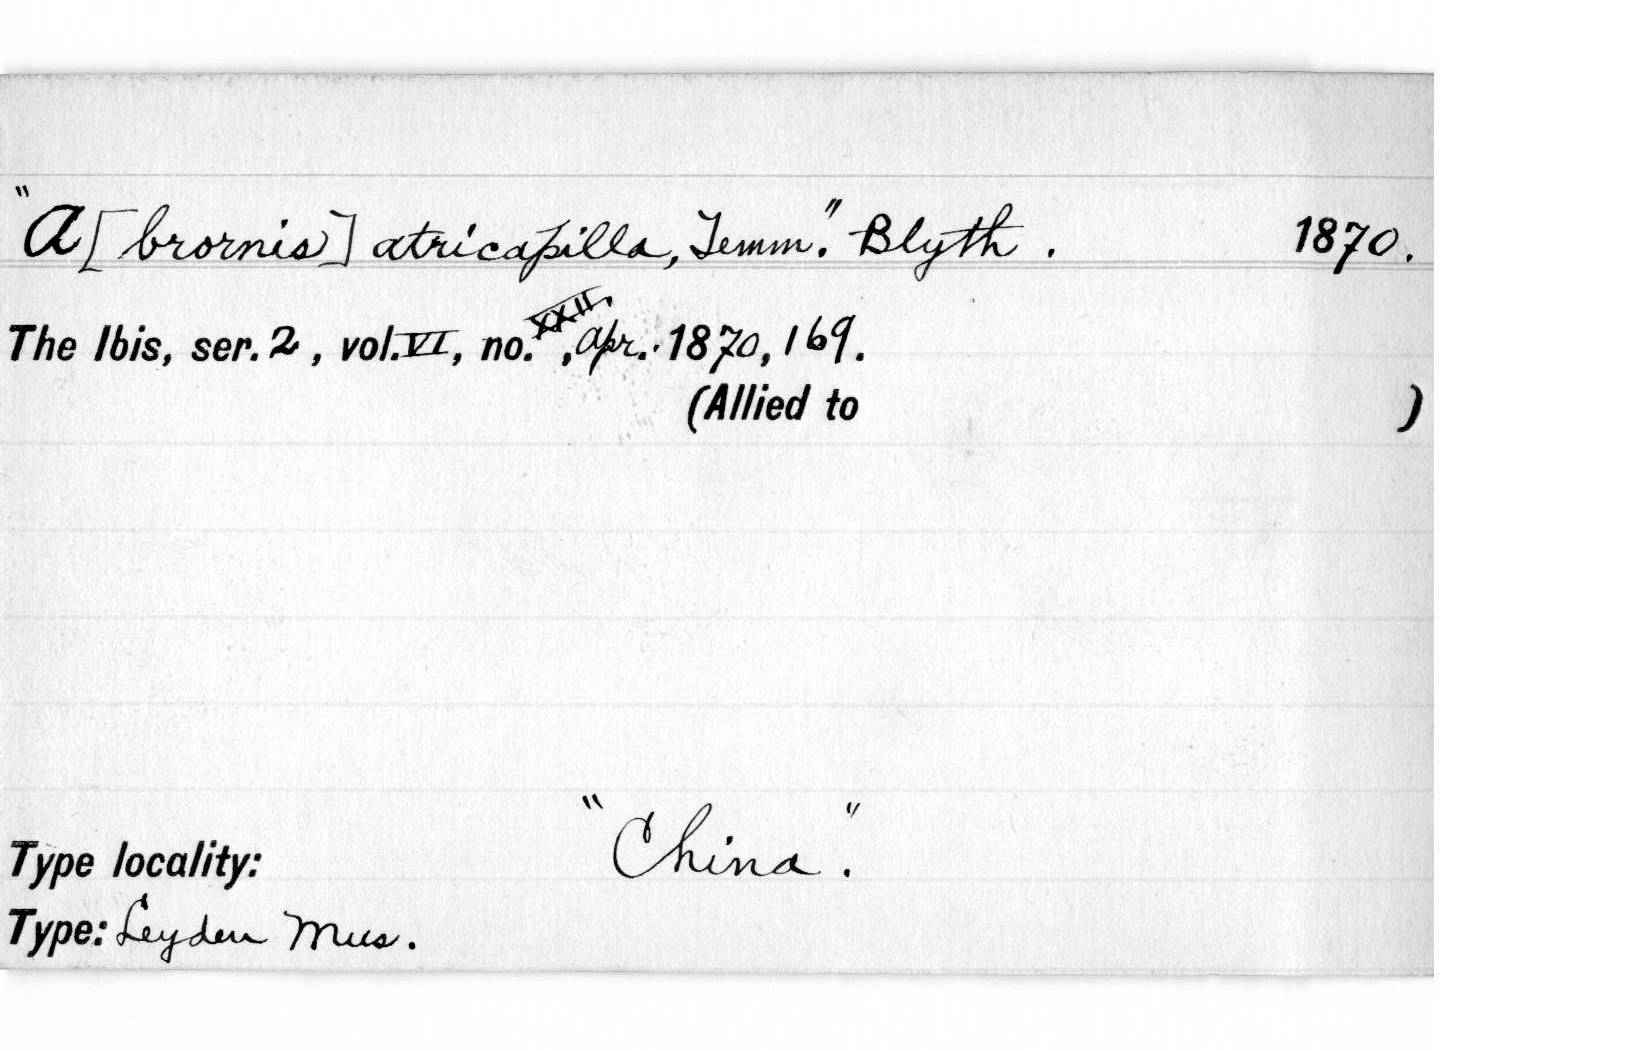 "A[brornis] atricapilla, Temm." Blyth. 1870.
The Ibis, ser. 2, vol. VI, no. XXII, Apr. 1870, 169.
(Allied to )
Type locality: "China".
Type: Leyden Mus.